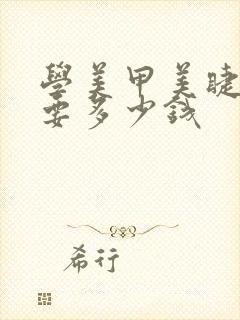 學美甲美睫
要多少錢
希行